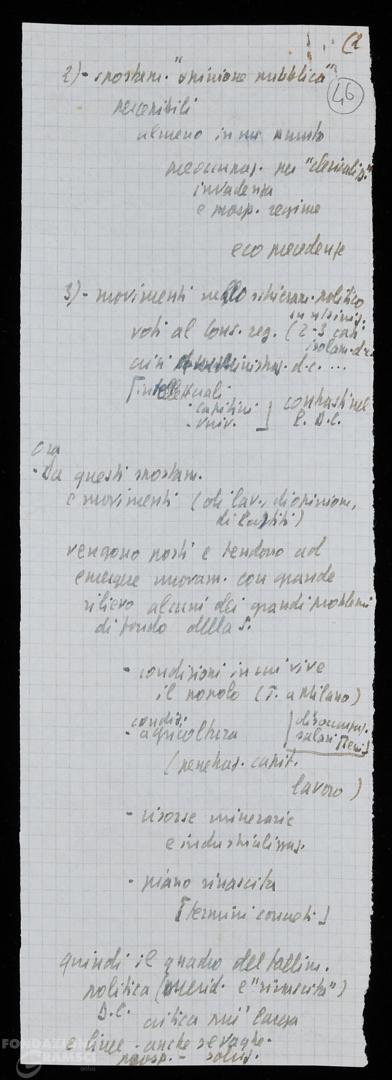 (2
46
2) - spostam. "opinione pubblica"
percepibili
almeno in un punto
preoccupaz. per "clericaliz."
invadenza
e prosp. regime
eco precedente
3) - movimenti nello schieram. politico
voti al Cons. reg. (2-3 cat.
in minis.
isolam. d.c.
crisi amministraz. d.c. ...
[intellettuali
: cattolici
: univ. ] contrasti nel
P. D.C.
ora
- Da questi spostam.
e movimenti (di lav., di opinione,
di partiti)
vengono posti e tendono ad
emergere nuovam. con grande
rilievo alcuni dei grandi problemi
di fondo della S.
- condizioni in cui vive
il popolo (T. a Milano)
- condiz.
agricoltura
[disoccupaz.
salari
(penetraz. capit.
lavoro)
- risorse minerarie
e industrializzaz.
- piano rinascita
[termini concreti]
quindi il quadro del fallim.
politica (merid. e "rinascita")
D.C. critica più larga
e linee - anche se vaghe -
prosp. - soluz.
FONDAZIONE
GRAMSCI
onlus